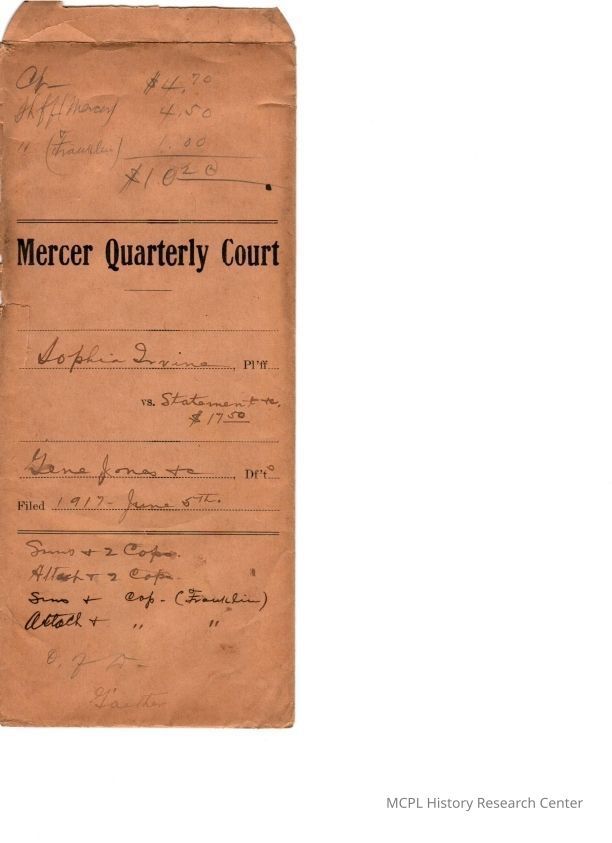 $4.70
Shff (Mercer) 4.50
" (Franklin) 1.00
$10 20
Mercer Quarterly Court
Sophia Irvine, Pl'ff
vs. Statement &c.
$17 50
Gene Jones &c, Df't
Filed 1917- June 5th.
Sums & 2 Cops.
Attach & 2 Cops.
Sums & Cop - (Franklin)
Attach & " "
Gaither
MCPL History Research Center